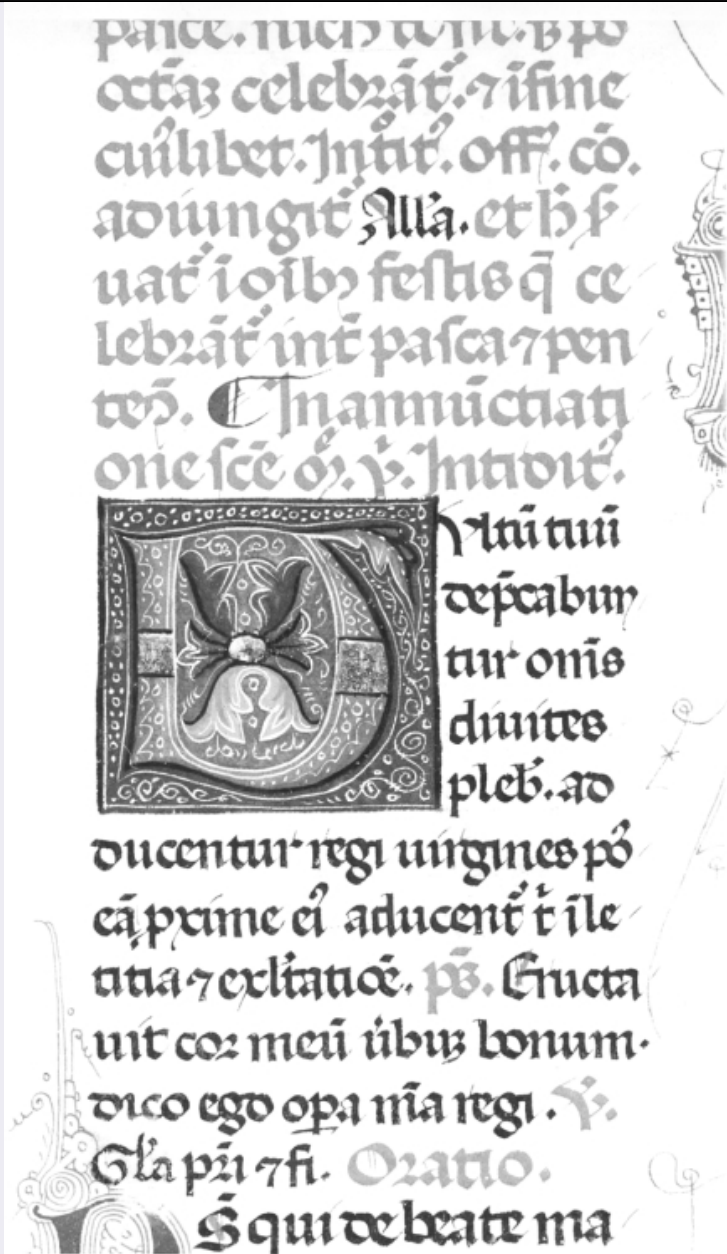 octaꝫ celebrāt᷑. ⁊ ifine
cuiꝰlibet. Intit᷑. off᷑. cō.
adiungit᷑ Allꝰa. et h̄ ẜ
uat᷑ ī oībꝫ festis q̄ ce
lebrāt᷑ int̄ pasca ⁊ pen
teꝯ. ¶ In annūctiati
one sc̄e ꝺ. ꝟ. Introit᷑.
Vltū tuū
dep̄cabun
tur om̄s
diuites
pleb̄. ad
ducentur regi uirgines pꝰ
eā ꝓxime eiꝰ aducent᷑ t᷑ ī le
titia ⁊ exl̄tatiōe. pͫs. Eructa
uit cor meū ūbuꝫ bonum.
dico ego oꝑa m̄a regi. ꝟ.
Gl̄a pr̄i ⁊ fi. Oratio.
DS̄ qui de beate ma